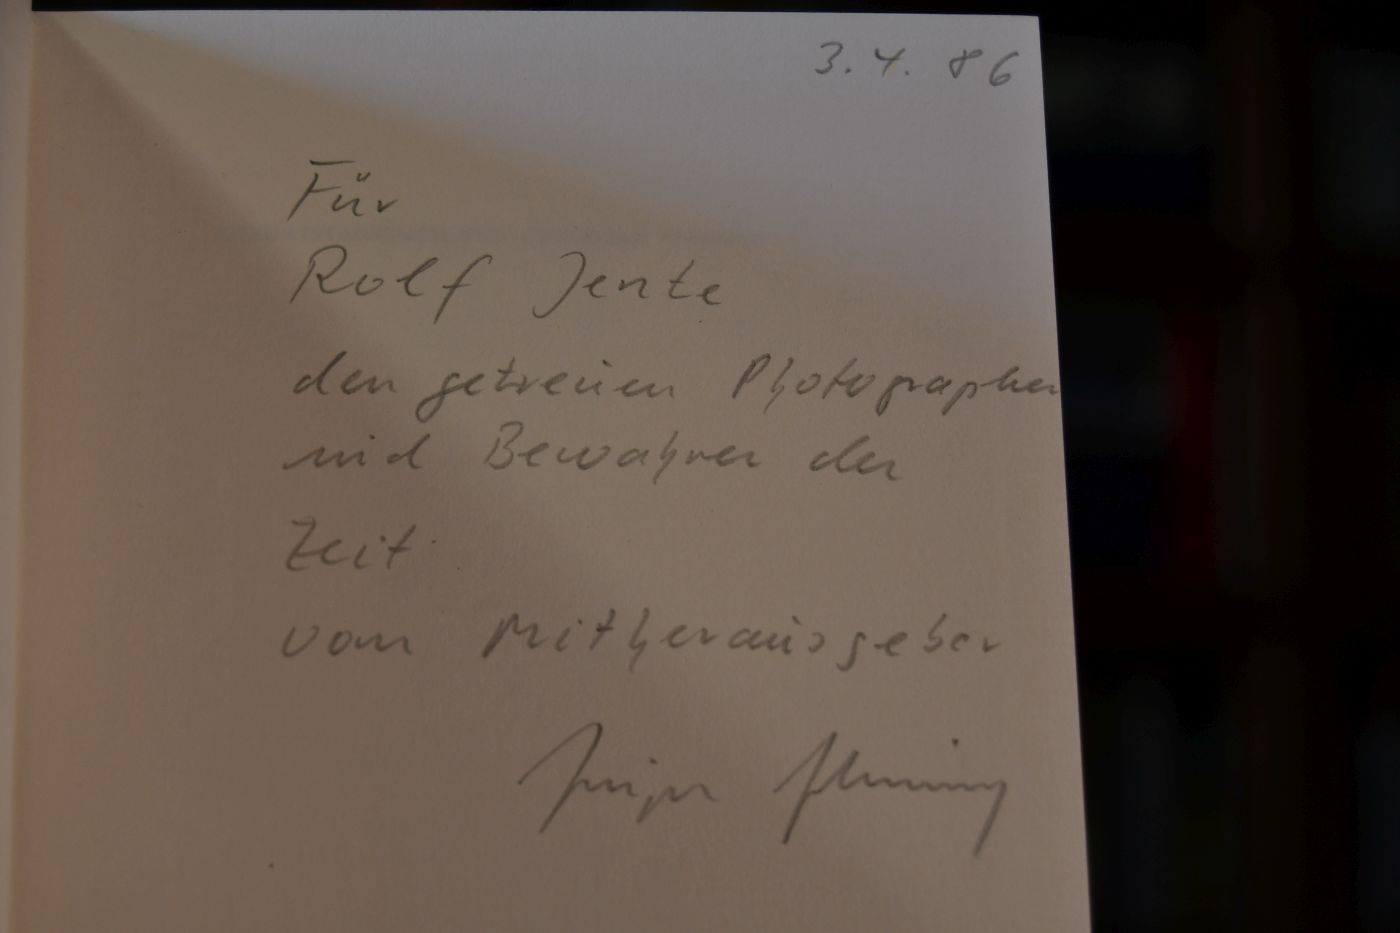 3.4.86
Für
Rolf Jente
den getreuen Photographen
und Bewahrer der
Zeit
vom Mitherausgeber